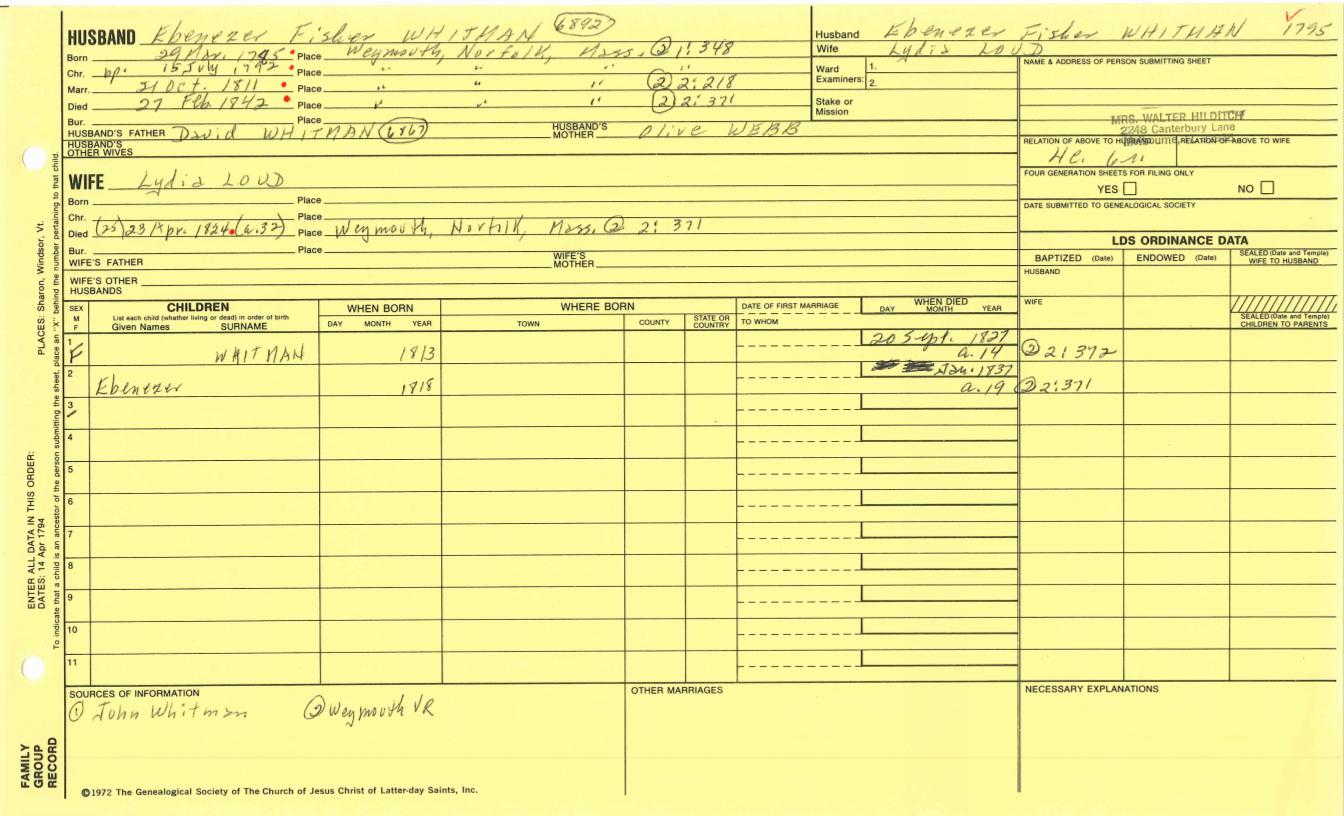 HUSBAND Ebenezer Fisher WHITMAN 6892
Born 29 Mar. 1785 Place Weymouth, Norfolk, Mass. ② 1:348
Chr. bp. 15 July 1792 Place " " "
Marr. 31 Oct. 1811 Place " " " ② 2:218
Died 27 Feb 1842 Place " " " ② 2:371
Bur. Place
HUSBAND'S FATHER David WHITMAN (6867) HUSBAND'S MOTHER Olive WEBB
HUSBAND'S OTHER WIVES
Husband Ebenezer Fisher WHITMAN 1795
Wife Lydia LOUD
Ward Examiners: 1.
2.
Stake or Mission
NAME & ADDRESS OF PERSON SUBMITTING SHEET
MRS. WALTER HILDITCH
2248 Canterbury Lane
RELATION OF ABOVE TO HUSBAND RELATION OF ABOVE TO WIFE
FOUR GENERATION SHEETS FOR FILING ONLY
YES NO
DATE SUBMITTED TO GENEALOGICAL SOCIETY
WIFE Lydia LOUD
Born Place
Chr. Place
Died (25) 23 Apr. 1824 (a.32) Place Weymouth, Norfolk, Mass. ② 2:371
Bur. Place
WIFE'S FATHER WIFE'S MOTHER
WIFE'S OTHER HUSBANDS
LDS ORDINANCE DATA
BAPTIZED (Date) ENDOWED (Date) SEALED (Date and Temple) WIFE TO HUSBAND
HUSBAND
WIFE
SEALED (Date and Temple) CHILDREN TO PARENTS
SEX M F
CHILDREN
List each child (whether living or dead) in order of birth
Given Names SURNAME
WHEN BORN
DAY MONTH YEAR
WHERE BORN
TOWN COUNTY STATE OR COUNTRY
DATE OF FIRST MARRIAGE
TO WHOM
WHEN DIED
DAY MONTH YEAR
1 F WHITMAN 1813 20 Sept. 1827 a. 14 ② 2:372
2 Ebenezer 1818 Jan. 1837 a. 19 ② 2:371
3
4
5
6
7
8
9
10
11
SOURCES OF INFORMATION
① John Whitman ② Weymouth VR
OTHER MARRIAGES
NECESSARY EXPLANATIONS
©1972 The Genealogical Society of The Church of Jesus Christ of Latter-day Saints, Inc.
FAMILY GROUP RECORD
ENTER ALL DATA IN THIS ORDER:
DATES: 14 Apr 1794 PLACES: Sharon, Windsor, Vt.
To indicate that a child is an ancestor of the person submitting the sheet, place an "X" behind the number pertaining to that child.